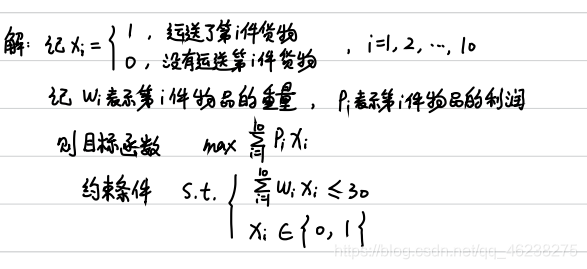 解: 记 Xi = { 1, 运送了第i件货物
0, 没有运送第i件货物 , i=1, 2, ..., 10
记 Wi表示第i件物品的重量, Pi表示第i件物品的利润
则目标函数 max ∑_{i=1}^{10} Pi Xi
约束条件 s.t. { ∑_{i=1}^{10} Wi Xi ≤ 30
Xi ∈ {0, 1}
https://blog.csdn.net/qq_46238275